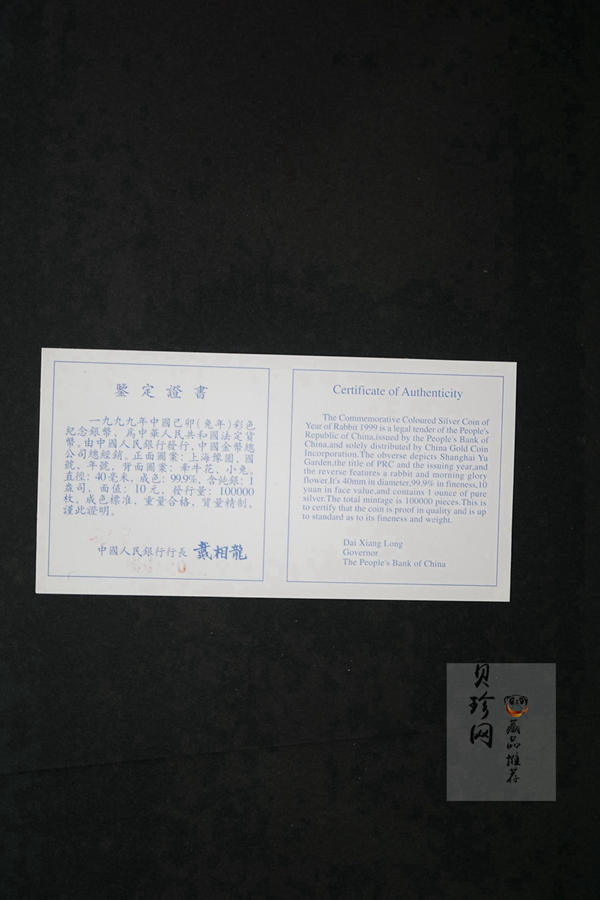 鑒定證書
一九九九年中國己卯(兔年)彩色
紀念銀幣，爲中華人民共和國法定貨
幣。由中國人民銀行發行，中國金幣總
公司總經銷。正面圖案：上海豫園，國
號，年號，背面圖案：牽牛花，小兔，
直徑：40毫米，成色：99.9%，含純銀：1
盎司，面值：10元，發行量：100000
枚，成色標準，重量合格，質量精制，
謹此證明。
中國人民銀行行長 戴相龍
Certificate of Authenticity
The Commemorative Coloured Silver Coin of
Year of Rabbit 1999 is a legal tender of the People's
Republic of China,issued by the People's Bank of
China,and solely distributed by China Gold Coin
Incorporation.The obverse depicts Shanghai Yu
Garden,the title of PRC and the issuing year,and
the reverse features a rabbit and morning glory
flower.It's 40mm in diameter,99.9% in fineness,10
yuan in face value,and contains 1 ounce of pure
silver.The total mintage is 100000 pieces.This is
to certify that the coin is proof in quality and is up
to standard as to its fineness and weight.
Dai Xiang Long
Governor
The People's Bank of China
贝珍网
藏品推荐